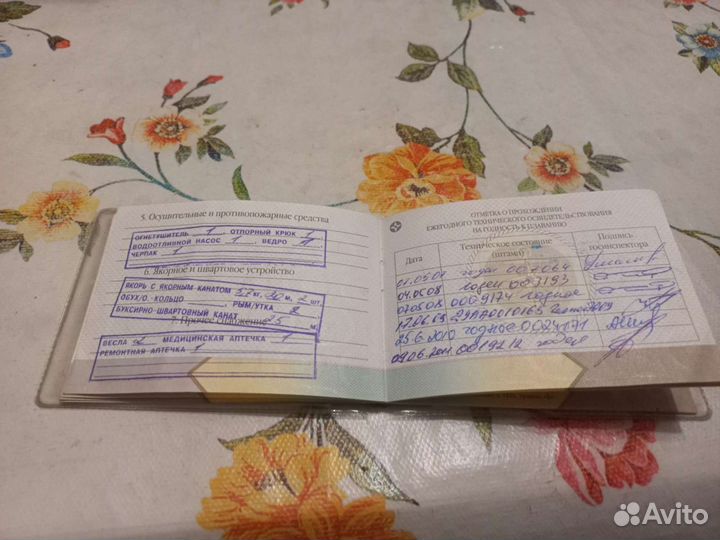 5. Осушительные и противопожарные средства
ОГНЕТУШИТЕЛЬ 1 ОТПОРНЫЙ КРЮК 1
ВОДООТЛИВНОЙ НАСОС 1 ВЕДРО
ЧЕРПАК 1
6. Якорное и швартовое устройство
ЯКОРЬ С ЯКОРНЫМ КАНАТОМ КГ, 30 М, 2 ШТ.
ОБУХ/О. КОЛЬЦО РЫМ/УТКА 2
БУКСИРНО-ШВАРТОВЫЙ КАНАТ 25 М.
7. Прочее снабжение
ВЕСЛА 2 МЕДИЦИНСКАЯ АПТЕЧКА 1
РЕМОНТНАЯ АПТЕЧКА 1
ОТМЕТКА О ПРОХОЖДЕНИИ
ЕЖЕГОДНОГО ТЕХНИЧЕСКОГО ОСВИДЕТЕЛЬСТВОВАНИЯ
НА ГОДНОСТЬ К ПЛАВАНИЮ
Дата
Техническое состояние (штамп)
Подпись госинспектора
годен
04.05.08 годен 003193
07.05.08 0009174 годное
17.06.09
25.6.2010 годное
09.06.2011 0019212 годен
Avito